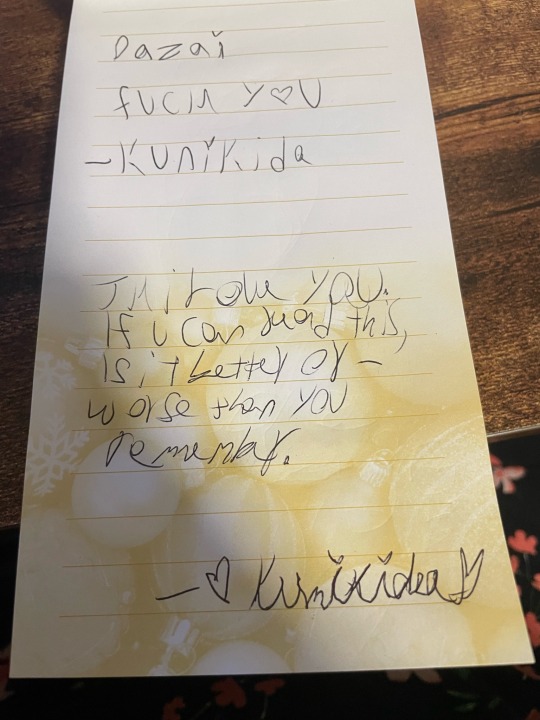 Dazai
fuck y♡u
-Kunikida
I you.
If u can read this,
Is it better or -
worse than you
remember.
-♡ Kunikidea ♡